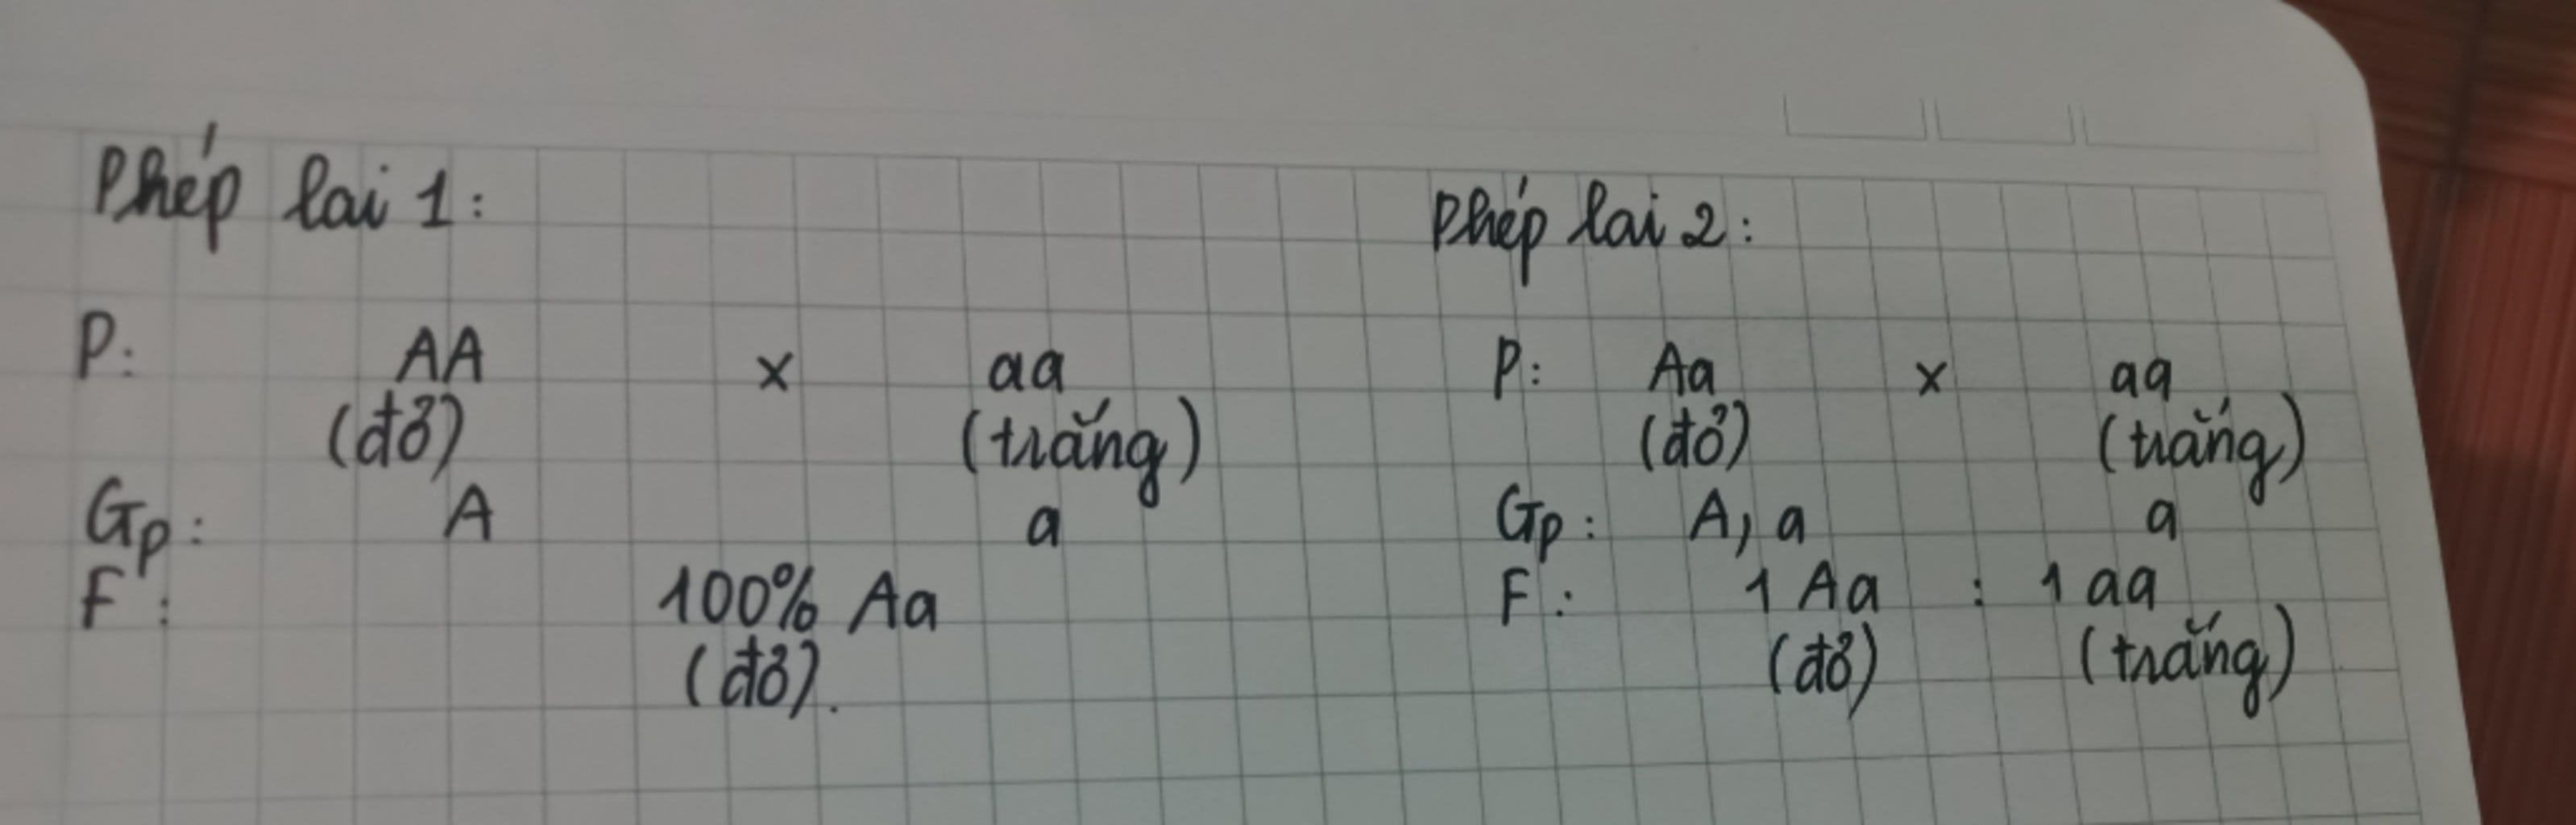 Phép lai 1:
P: AA x aa
(đỏ) (trắng)
Gp: A a
F: 100% Aa
(đỏ).
Phép lai 2:
P: Aa x aa
(đỏ) (trắng)
Gp: A, a a
F: 1 Aa : 1 aa
(đỏ) (trắng)